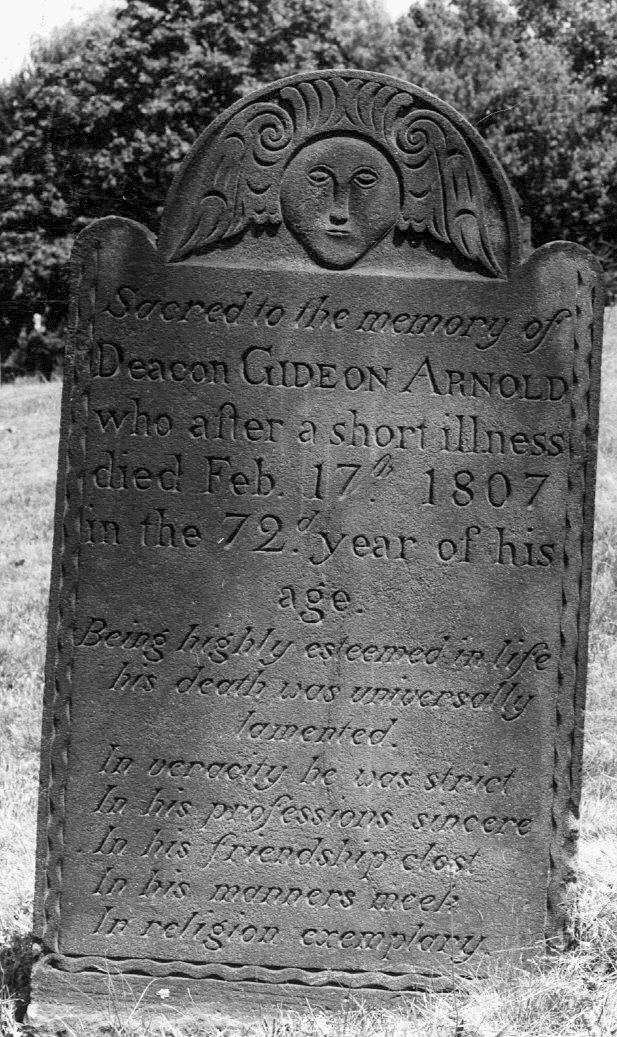 Sacred to the memory of
Deacon GIDEON ARNOLD
who after a short illness
died Feb. 17th. 1807
in the 72d. year of his
age.
Being highly esteemed in life
his death was universally
lamented.
In veracity he was strict
In his professions sincere
In his friendship clost
In his manners meek
In religion exemplary.